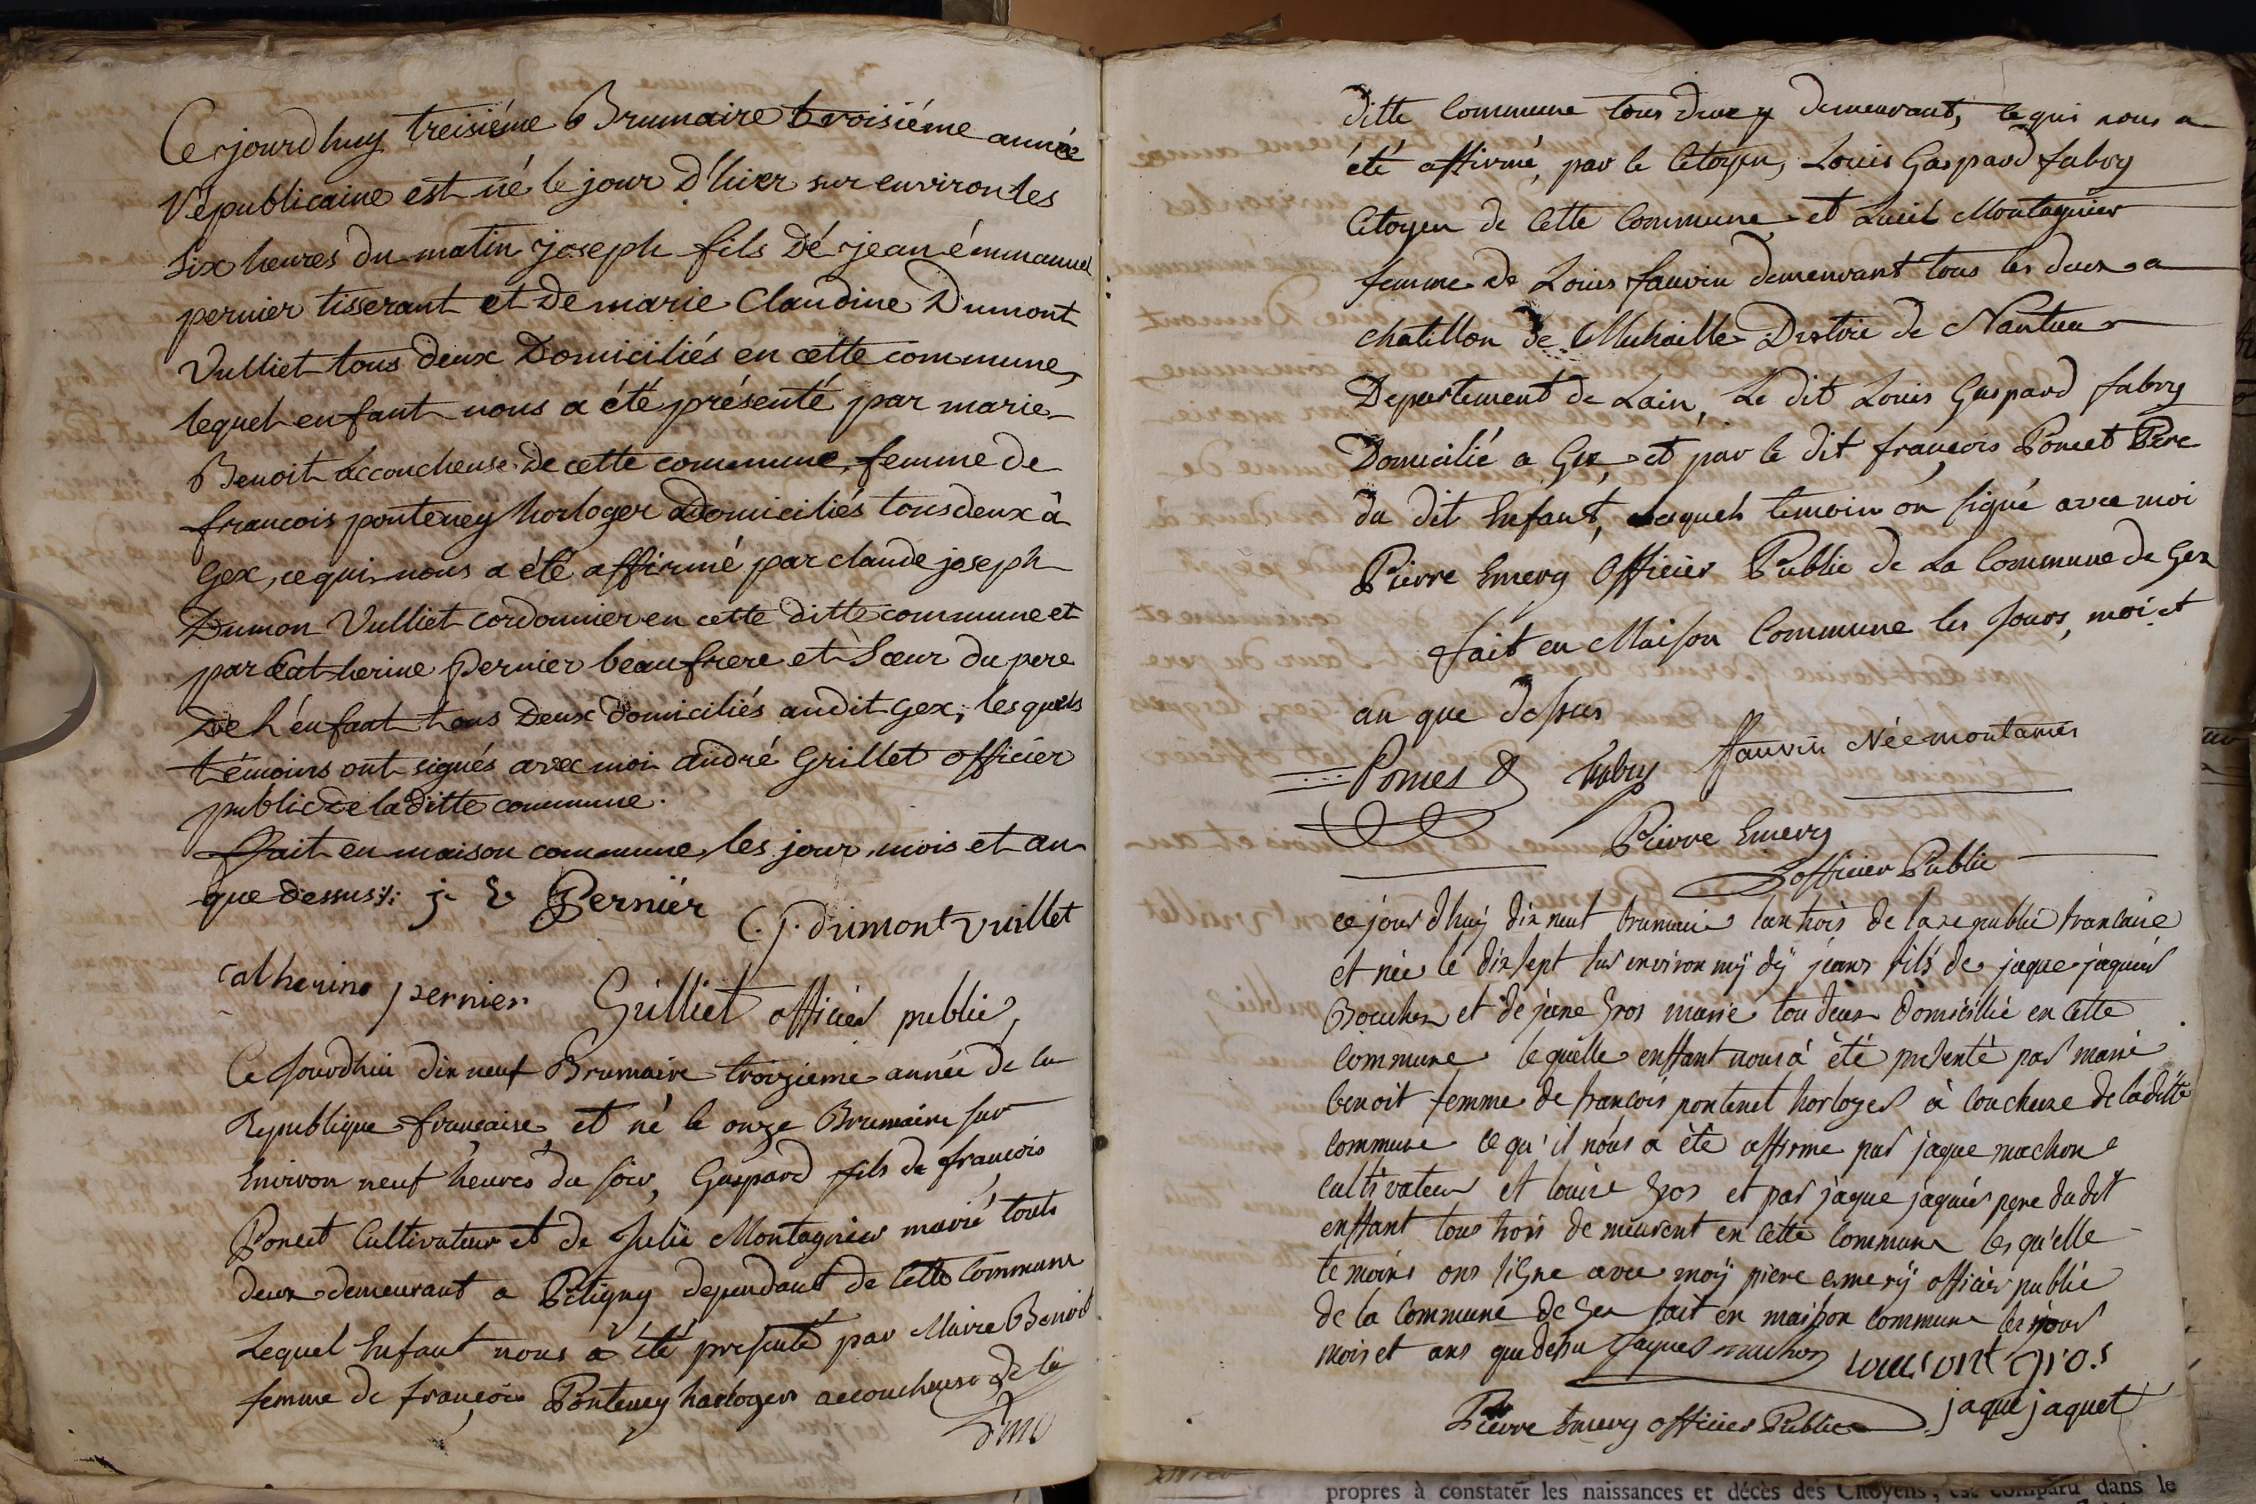 Ce jourdhuy treisiéme Brumaire troisiéme année
républicaine est né le jour d'hier sur environ les
six heures du matin joseph fils dé jean émmanuel
pernier tisserant et de marie Claudine Dumont
Vulliet tous deux Domiciliés en cette commune,
lequel enfant nous a été présenté par marie
Benoit accoucheuse de cette commune, femme de
francois ponteney horloger domiciliés tous deux à
Gex, ce qui nous a été affirmé par claude joseph
Dumon Vulliet cordonnier en cette ditte commune et
par Catherine Pernier beaufrere et Sœur du pere
de l'énfant tous Deux domiciliés audit Gex, lesquels
témoins ont signés avec moi andré Grillet officier
public de la ditte commune.
ffait en maison commune les jour, mois et an
que dessus j. E Perniér
C. J. dumont vuillet
Catherine pernier Grilliet officier public
Ce jourdhui dix neuf Brumaire troizieme année de la
Republique française, et né le onze Brumaire sur
Environ neuf heures du soir, Gaspard fils de françois
Poncet Cultivateur et de Julie Montagnier marié touts
deux demeurant a Pitigny dependant de Cette Commune
Lequel Enfant nous a été présenté par Marie Benoit
femme de françois Ponteney horloger accoucheuse de la
ditte Commune tous deux y demeurant, ce qui nous a
été affirmé, par le Citoyen, Louis Gaspard fabry
Citoyen de Cette Commune et Luiel Montagnier
femme de Louis fauvin demeurant tous les deux a
chatillon de Michaille Distric de Nantua
Departement de Lain, Le dit Louis Gaspard fabry
Domicilié a Gex, et par le dit françois Poncet Père
du dit Enfant, lesquels temoin on signé avec moi
Pierre Emery Officier Public de La Commune de Gex
fait en Maison Commune les Jours, moi et
an que dessus
Ponset fabry ffauvin Née montanier
Pierre Emery
officier Public
ce jour dhuy dix neut brumaire lan trois de la republic francaise
et née le dix sept sur environ mÿ dÿ jeans fils de jaque jaquier
Boucher et de jeane Gros marié tou deux domicillié en Cette
Commune lequelle enffant nous à été presenté par marie
benoit femme de francois pontenet horloger à Coucheuse de la ditte
Commune ce qu'il nous a èté affirme par jaque machon
Cultivateur et louise Gros et par jaque jaquier pere du dit
enffant tous trois demeurent en Cette Commune lesquelle
te moins ons signe avec moÿ piere emerÿ officier public
de la Commune de Gex fait en maison Commune les jour
mois et ans que desu Jaques machon Louisont Gros
Pierre Emery officier Public jaque jaquet
propres à constater les naissances et décès des Citoyens, est comparu dans le